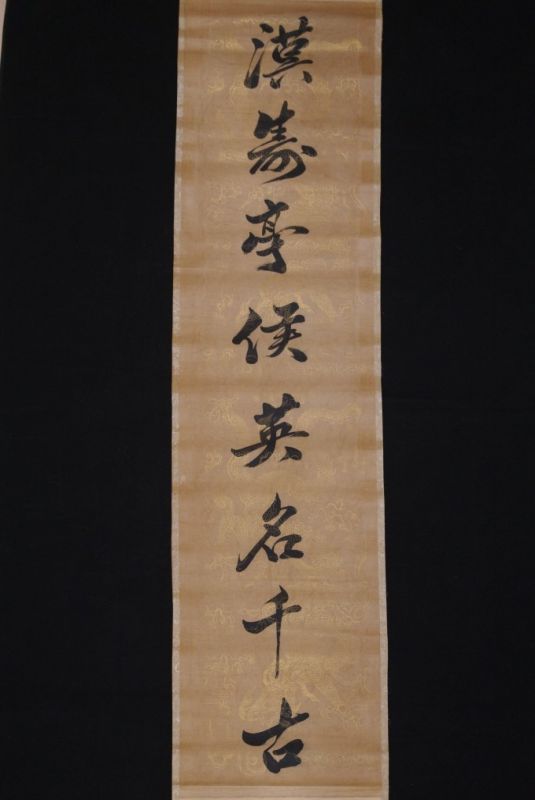 漢壽亭侯英名千古